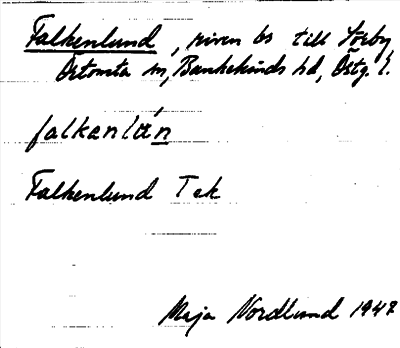 Falkenlund, riven bs till Sörby,
Örtomta sn, Bankekinds hd, Östg. l.
falkenlán
Falkenlund Tek
Maja Nordlund 1947